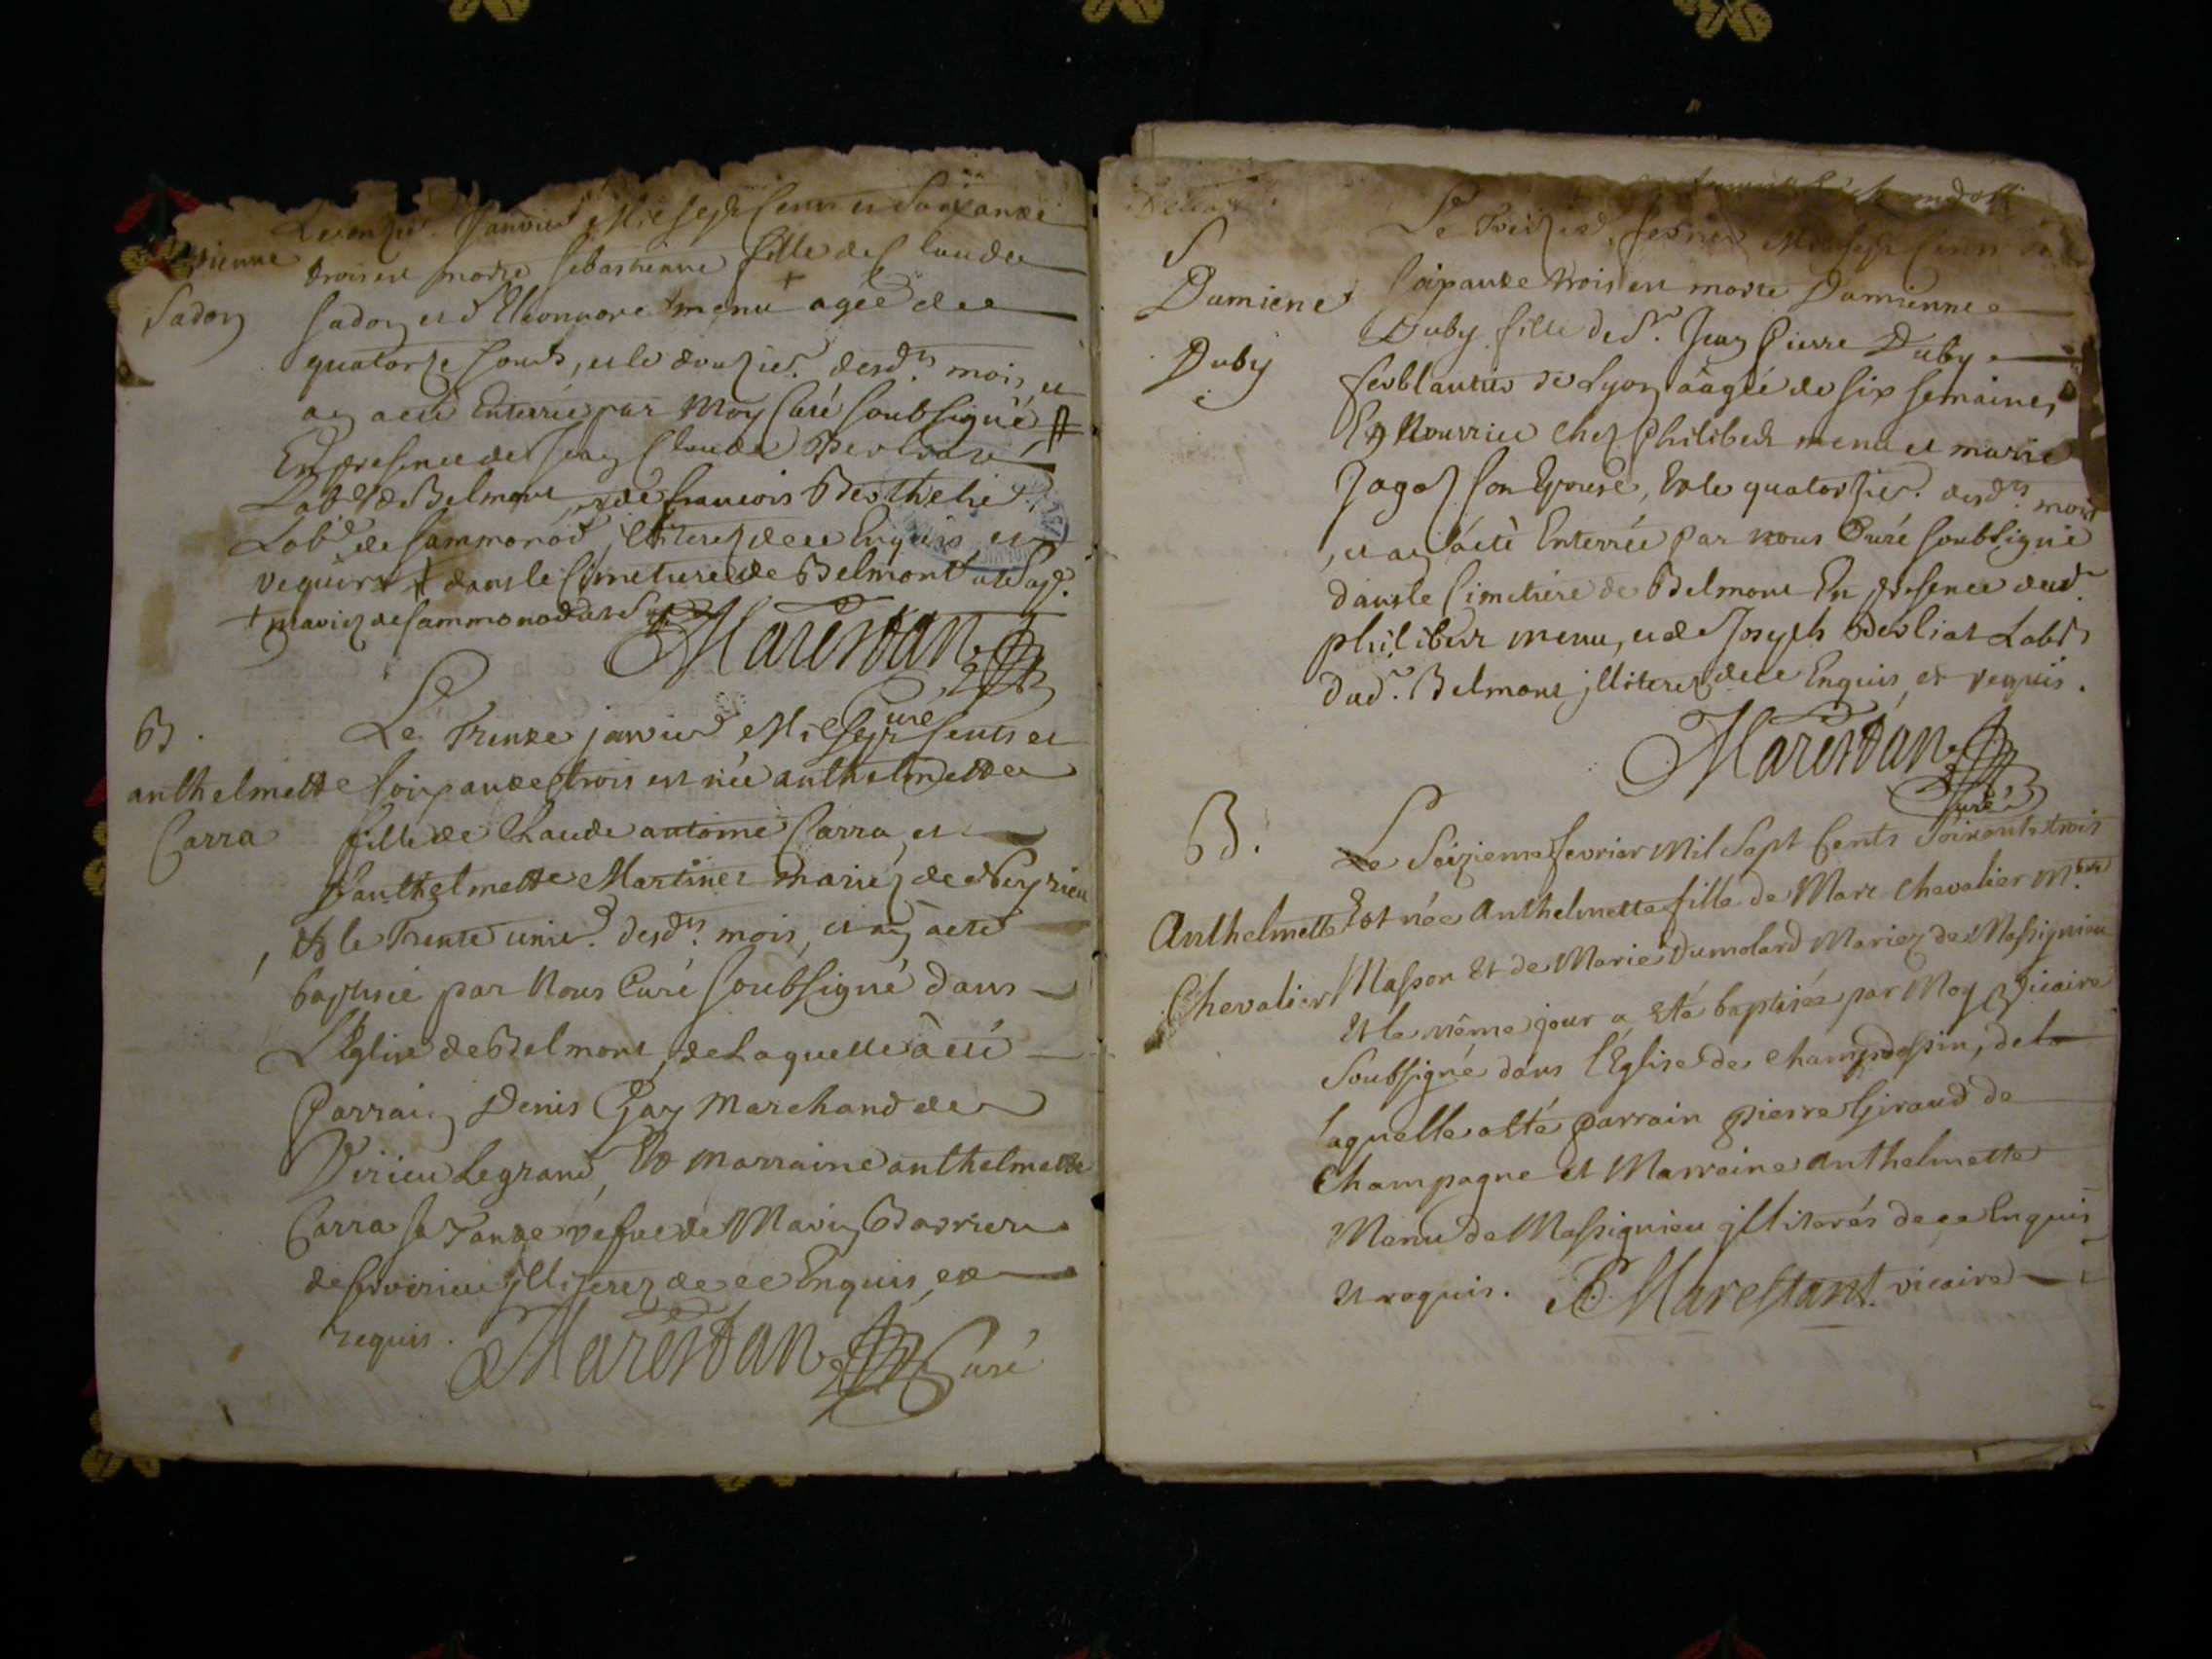 Le onzie. Janvier Mil sept cent et Soixante
tienne
trois est morte sebastienne fille de Claude
Sadon
sadon et d'Eleonnore + menu agée de
quatorze jours, et le douzie. desd.ts mois, et
an a été Enterrée par Moy Curé soubsigné
En presence de Jean Claude
Lab.r de Belmont et de francois Berthelie
Lab.r de sammonod, illiterez de ce Enquis, et
requis dans le Cimetiere de Belmont
+ mariez de sammonod
Marestan
Curé
B.
Le Trente janvier Mil Sept Cents et
anthelmette
soixante trois est née anthelmette
Carra
fille de Claude antoine Carra, et
d'anthelmette Martinet mariez de Neyrieu
Et le Trente unie. desd.ts mois, et an a été
baptisée par Nous Curé soubsigné dans
L'Eglise de Belmont, de Laquelle a été
Parrain Denis Gay Marchand de
Virieu Legrand, Et marraine anthelmette
Carra sa Tante vefue de Marin Barrieu
de illiterez de ce Enquis, et
requis.
Marestan Curé
Le Treizie. fevrier Mil sept Cents
S
Damiene
soixante trois est morte Damienne
Duby
Duby fille de S.r Jean Pierre Duby
ferblantier de Lyon aagée de six semaines
En Nourrice chez Philibert menu et marie
Jagoz son Epouse, Et le quatorzie. desd.ts mois
, et an a été Enterrée par nous Curé soubsigné
dans le Cimetiére de Belmont En presence dud.
philibert menu, et de Joseph Berliat Lab.rs
dud. Belmont illiterez de ce Enquis, et requis.
Marestan
Curé
B.
Le Seizieme fevrier Mil Sept Cents Soixante trois
Anthelmette
Est née Anthelmette fille de Marc Chevalier M.tre
Chevalier
Masson Et de Marie Dumolard Mariez de Massignieu
Et le même jour a Eté baptisée par Moy Vicaire
Soubsigné dans l'Eglise de Champdossin, de la
laquelle a Eté parrain pierre Giraud de
Champagne et Marraine Anthelmette
Menu de Massignieu jlliterés de ce Enquis
Et requis. Marestant. vicaire